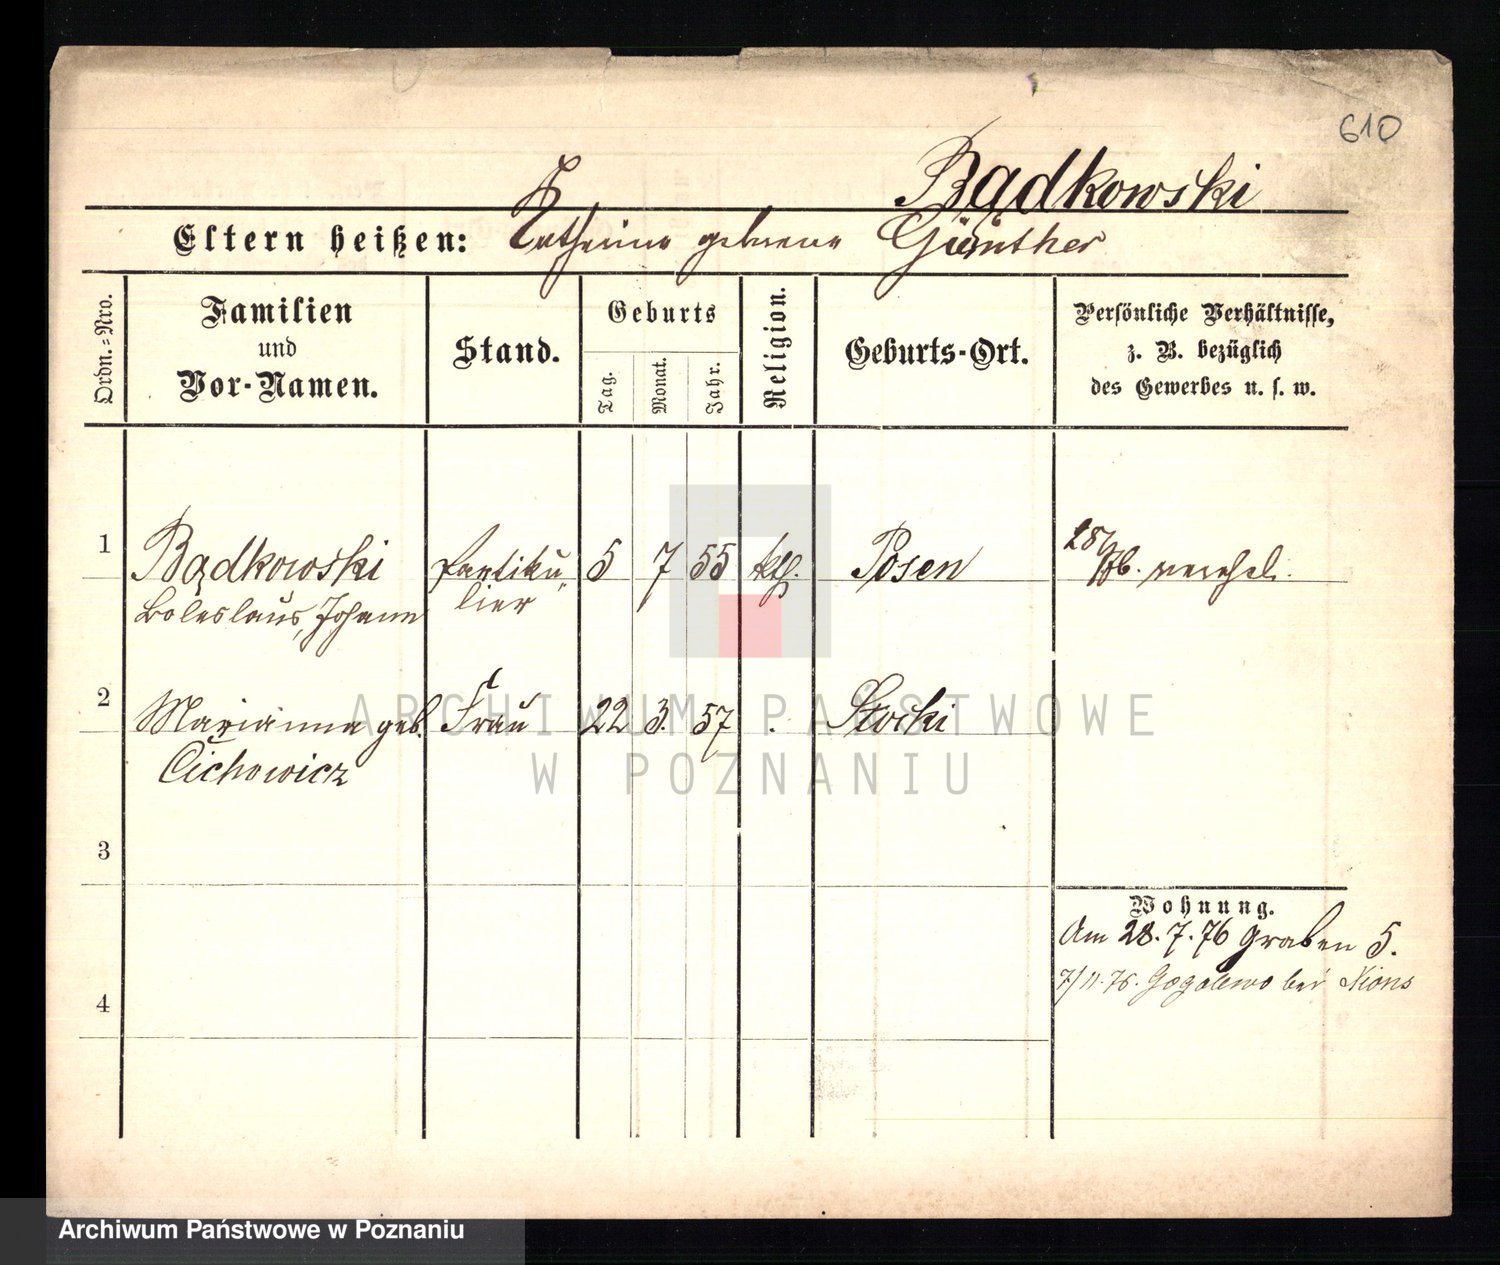 610
Bądkowski
Eltern heißen: Katharina geborene Günther
Ordn.=Nro.
Familien
und
Vor-Namen.
Stand.
Geburts
Tag.
Monat.
Jahr.
Religion.
Geburts-Ort.
Persönliche Verhältnisse,
z. B. bezüglich
des Gewerbes u. s. w.
1 Bądkowski Partiku- 5 7 55 kth. Posen
Boleslaus, Johann lier
2 Marianna geb. Frau 22 3. 57 Slocki
Cichowicz
3
4
Wohnung.
Am 28.7.76 Graben 5.
7/11.76. Gogolewo bei Xions
ARCHIWUM PAŃSTWOWE
W POZNANIU
Archiwum Państwowe w Poznaniu